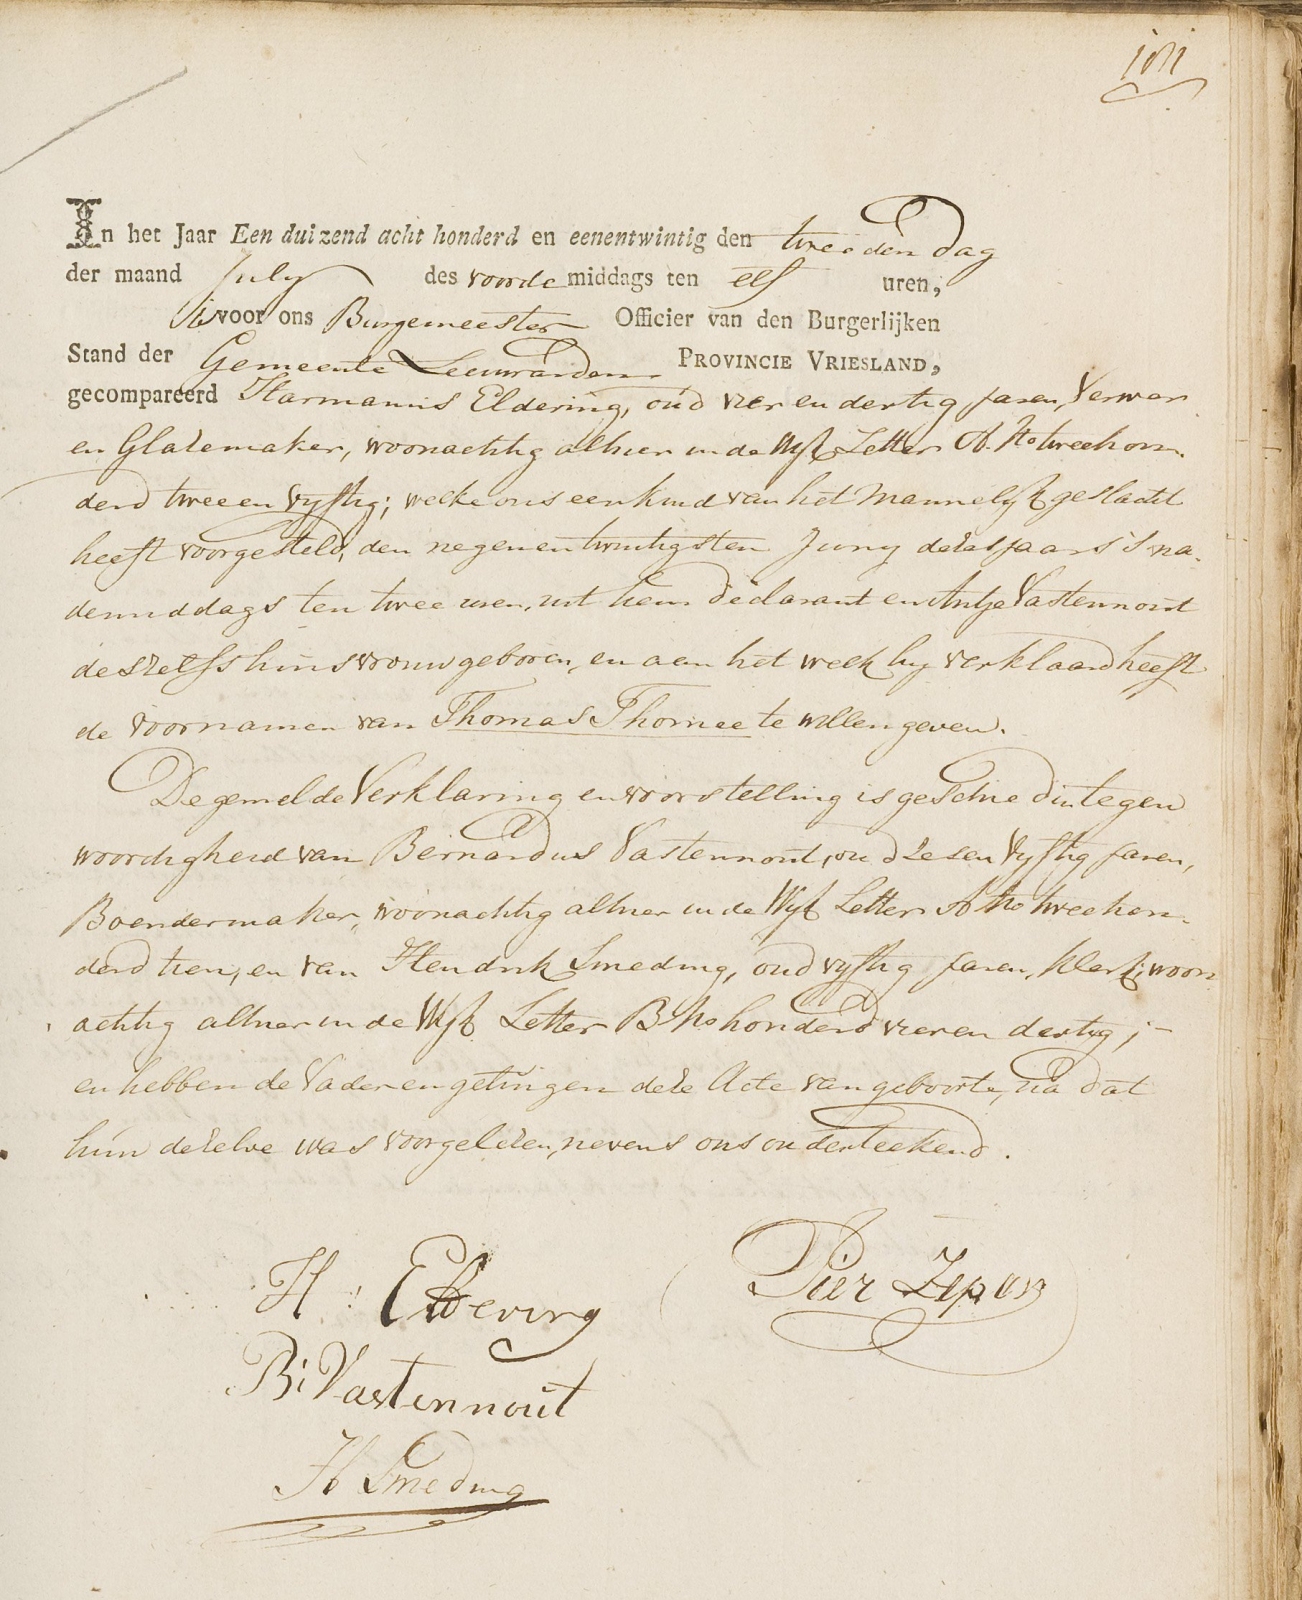 In het Jaar Een duizend acht honderd en eenentwintig den tweeden dag
der maand July des voorde middags ten elf uren,
is voor ons Burgemeester Officier van den Burgerlijken
Stand der Gemeente Leeuwarden PROVINCIE VRIESLAND,
gecompareerd Harmannus Eldering, oud vier en dertig jaren, Verwer
en Glazemaker, woonachtig alhier in de Wyk Letter A. No twee hon-
derd twee en vyftig; welke ons een kind van het mannelyk geslacht
heeft voorgesteld, den negenentwintigsten Juny dezes jaars 's na-
demiddags ten twee uren, uit hem declarant en Antje Vastennoút
deszelfs húisvrouw geboren, en aan het welk hy verklaard heeft
de voornamen van Thomas Thomee te willen geven.
De gemelde Verklaring en voorstelling is geschied in tegen
woordigheid van Bernardus Vastennoút, oud zes en vyftig jaren,
Boendermaker, woonachtig alhier in de Wyk Letter A No twee hon-
derd tien, en van Hendrik Smeding, oud vyftig jaren, klerk, woon
achtig alhier in de Wyk Letter B No honderd vier en dertig; -
en hebben de Vader en getúigen deze Acte van geboorte, na dat
hún dezelve was voorgelezen, nevens ons onderteekend.
H: Eldering Pier Zeper
B: Vastennoút
H Smeding